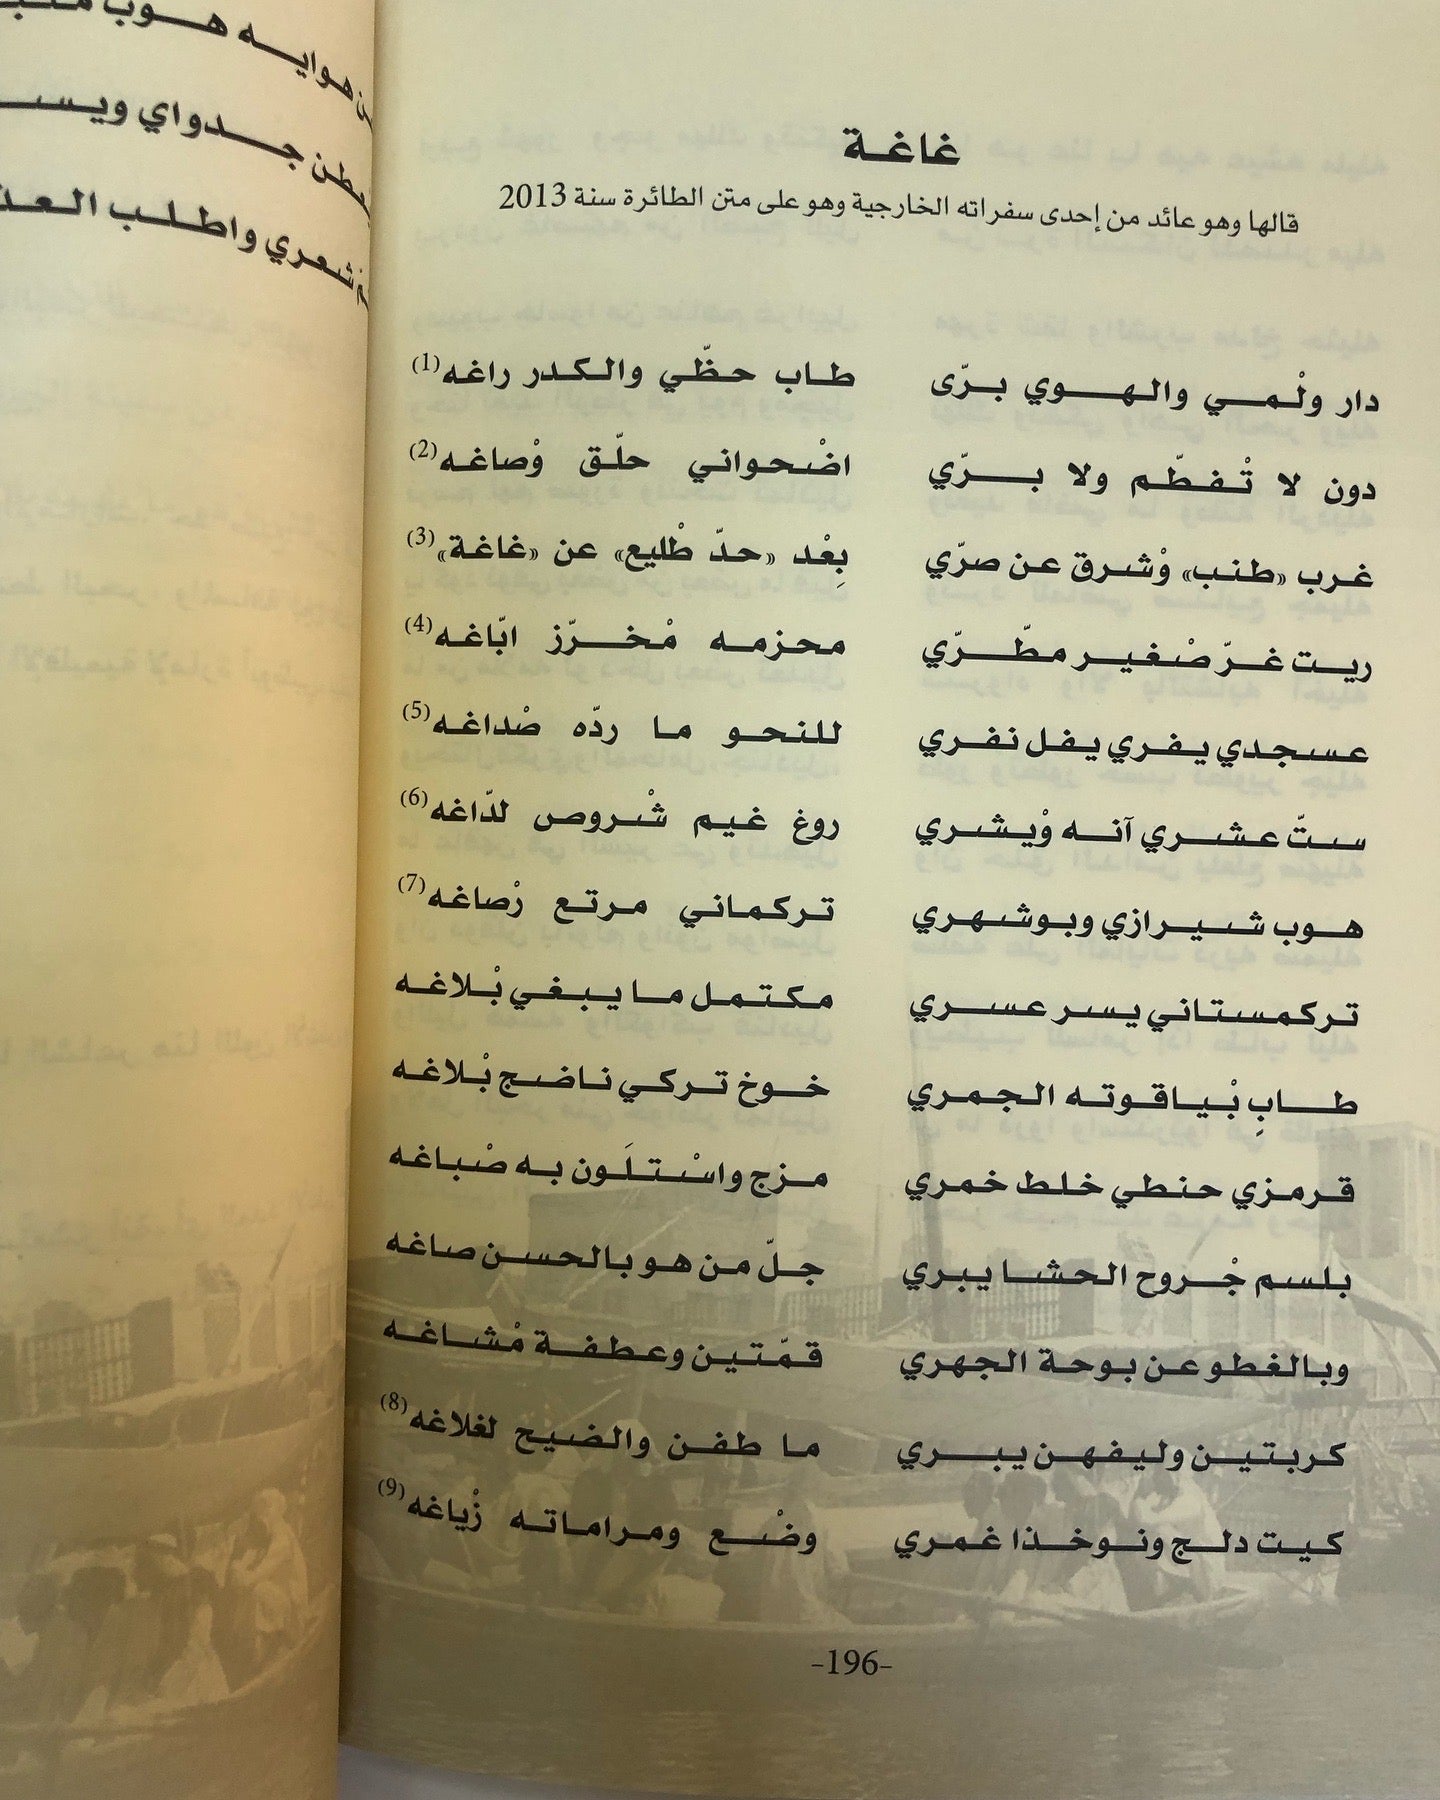 هوايه هوب
جدواي
شعري واطلب
غاغة
قالها وهو عائد من إحدى سفراته الخارجية وهو على متن الطائرة سنة 2013
دار ولْمي والهوي برّى طاب حظّي والكدر راغه(1)
دون لا تْفطّم ولا برّي اضْحواني حلّق وْصاغه(2)
غرب «طنب» وْشرق عن صرّي بِعْد «حدّ طْليع» عن «غاغة»(3)
ريت غرّ صْغير مطّرّي محزمه مْخرّز ابّاغه(4)
عسجدي يفري يفل نفري للنحو ما ردّه صْداغه(5)
ستّ عشري آنه وْيشري روغ غيم شْروص لدّاغه(6)
هوب شيرازي وبوشهري تركماني مرتع رْصاغه(7)
تركمستاني يسر عسري مكتمل ما يبغي بْلاغه
طابِ بْياقوته الجمري خوخ تركي ناضج بْلاغه
قرمزي حنطي خلط خمري مزج واسْتلَون به صْباغه
بلسم جْروح الحشا يبري جلّ من هو بالحسن صاغه
وبالغطو عن بوحة الجهري قمّتين وعطفة مْشاغه
كربتين وليفهن يبري ما طفن والضيح لغلاغه(8)
كيت دلج ونوخذا غمري وضْع ومراماته زْياغه(9)
-196-